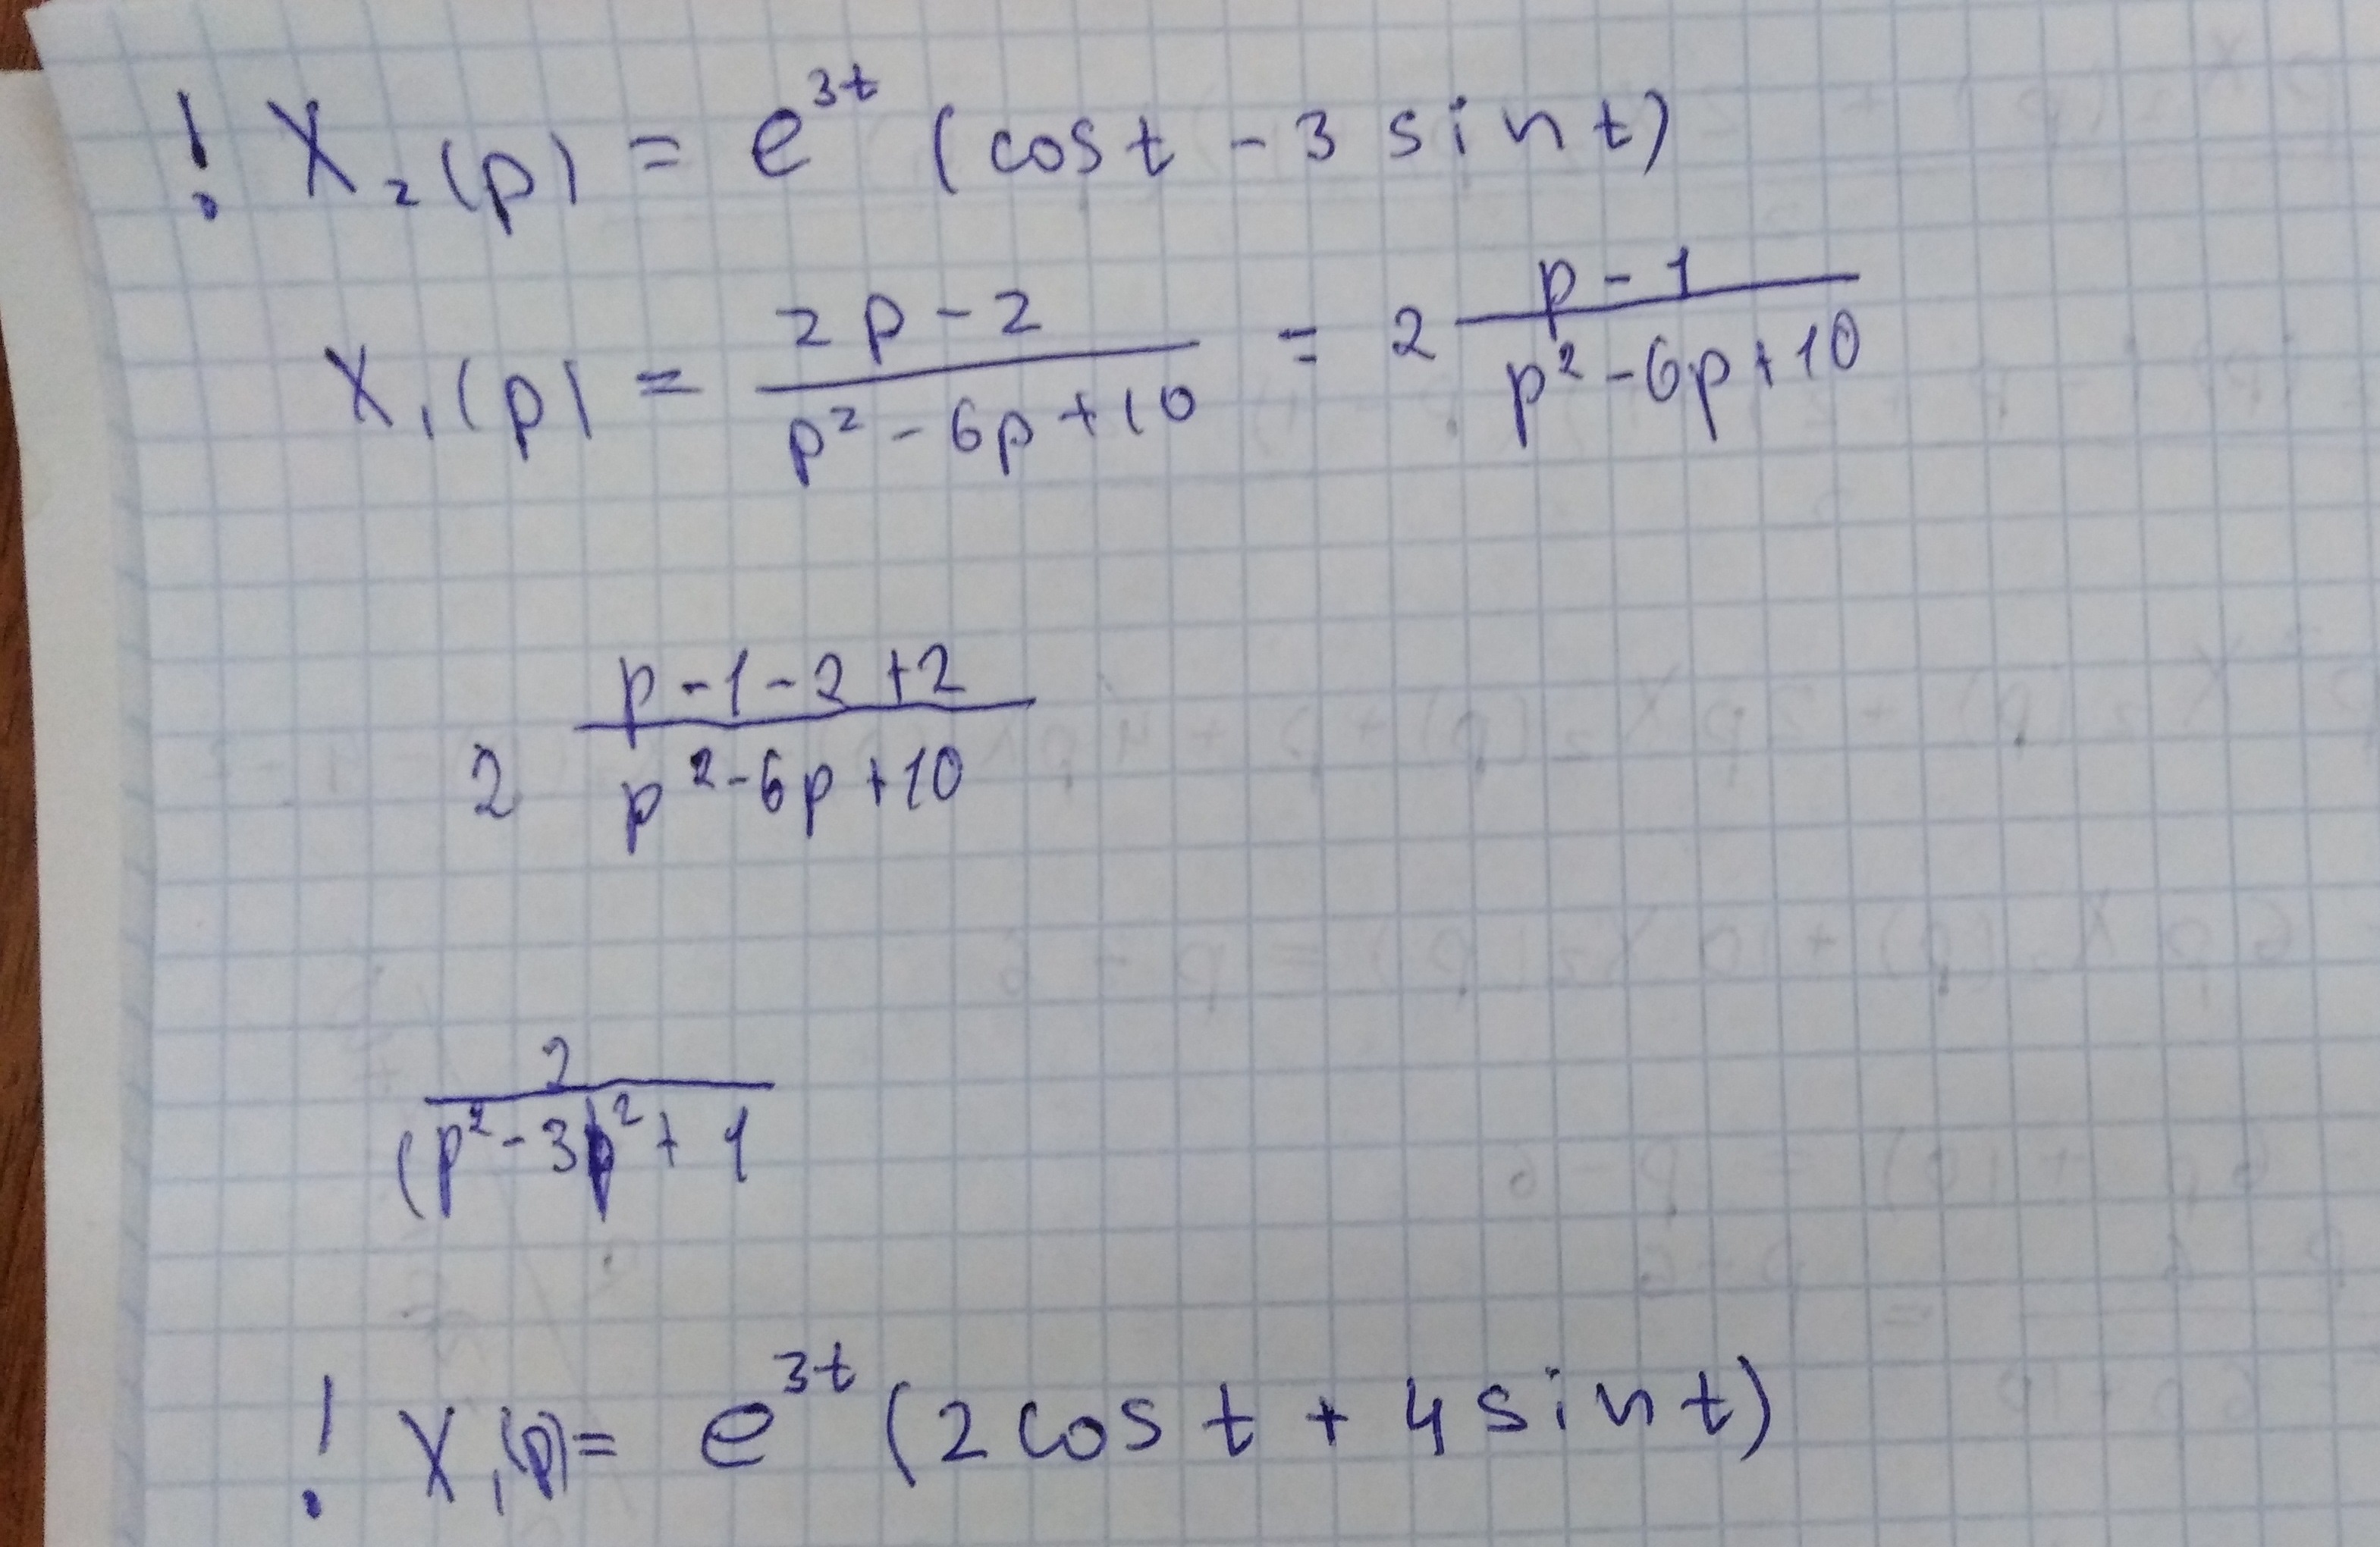 ! X₂(p) = e^3t (cos t - 3 sin t)
X₁(p) = (2p - 2)/(p² - 6p + 10) = 2 (p - 1)/(p² - 6p + 10)
2 (p - 1 - 2 + 2)/(p² - 6p + 10)
2/(p² - 3)² + 1
! X₁(p) = e^3t (2 cos t + 4 sin t)